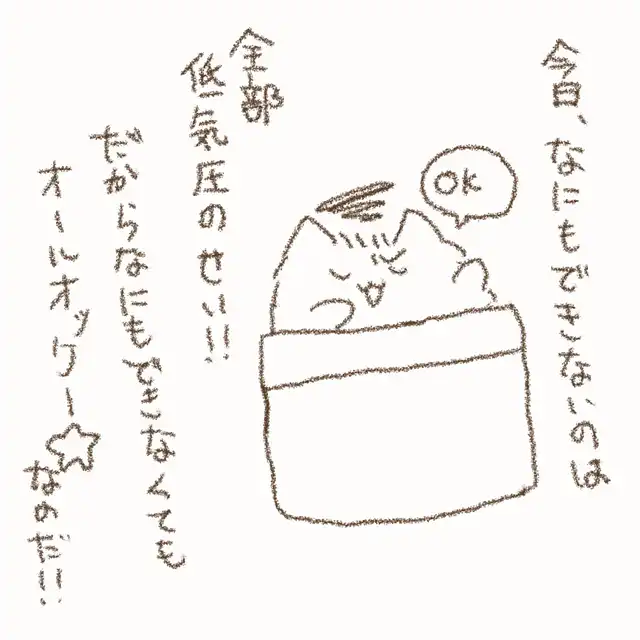 今日、なにもできないのは
OK
全部
低気圧のせい!!
だからなにもできなくても
オールオッケー☆なのだ!!